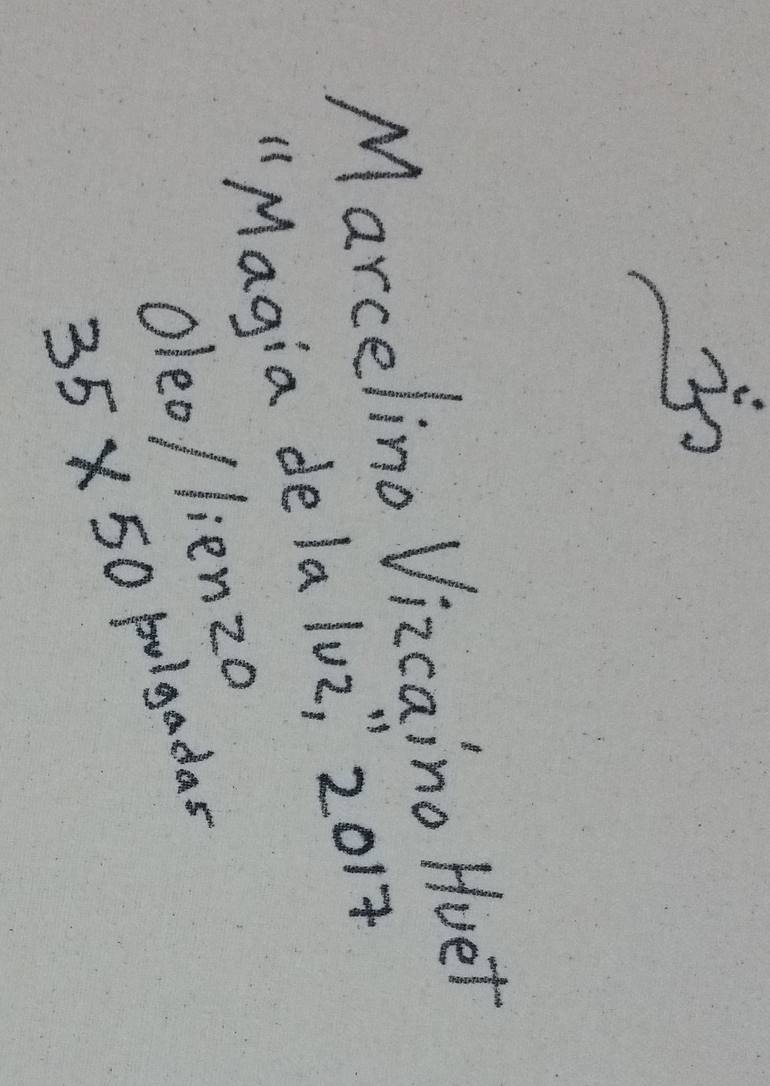 Marcelino Vizcaíno Huet
"Magia de la luz," 2017
Oleo/lienzo
35 x 50 pulgadas